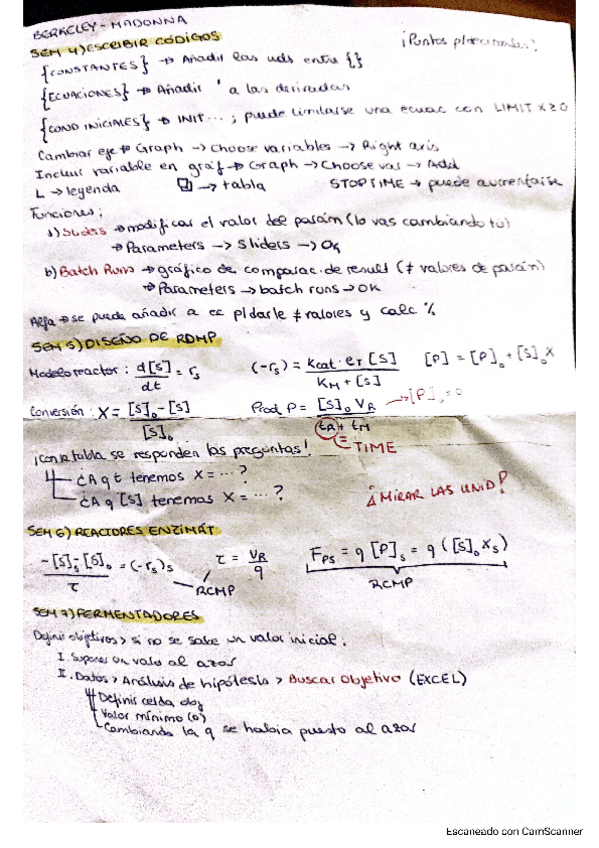 BERKELEY - MADONNA
SEM 4) ESCRIBIR CÓDIGOS
¡Puntos p/ decimales!
{CONSTANTES} → Añadir las uds entre {}
{ECUACIONES} → Añadir ' a las derivadas
{COND INICIALES} → INIT...; puede limitarse una ecuac con LIMIT X≥0
Cambiar eje → Graph → Choose variables → Right axis
Incluir variable en gráf → Graph → Choose var → Add
L → leyenda → tabla STOPTIME → puede aumentarse
Funciones:
a) Sliders → modificar el valor del parám (lo vas cambiando tú)
→ Parameters → Sliders → OK
b) Batch Runs → gráfico de comparac. de result (≠ valores de parám)
→ Parameters → batch runs → OK
Alfa → se puede añadir a cc p/ darle ≠ valores y calc %
SEM 5) DISEÑO DE RDMP
Modelo reactor: d[S]/dt = rs (-rs) = kcat · eT [S] / KM + [S] [P] = [P]o + [S]o X
Conversión: X = [S]o - [S] / [S]o Prod. P = [S]o VR / tR + tM → [P]o = 0
= TIME
¡con la tabla se responden las preguntas!
¿A q t tenemos X = ...?
¿A q [S] tenemos X = ...?
¡MIRAR LAS UNID!
SEM 6) REACTORES ENZIMÁT
-[S]s - [S]o / τ = (-rs)s τ = VR / q FPS = q [P]s = q ([S]o Xs)
RCMP
RCMP
SEM 7) FERMENTADORES
Definir objetivos > si no se sabe un valor inicial.
I. Suponer un valor al azar
I. Datos > Análisis de hipótesis > Buscar Objetivo (EXCEL)
Definir celda obj
Valor mínimo (0)
Cambiando la q se había puesto al azar
Escaneado con CamScanner